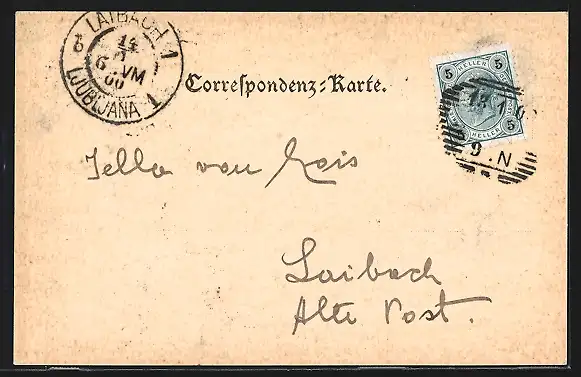 LAIBACH 1
LJUBLJANA 1
Correspondenz-Karte.
5 HELLER 5
HELLER 5
9 . N
Jella von
Laibach
Alte Post.